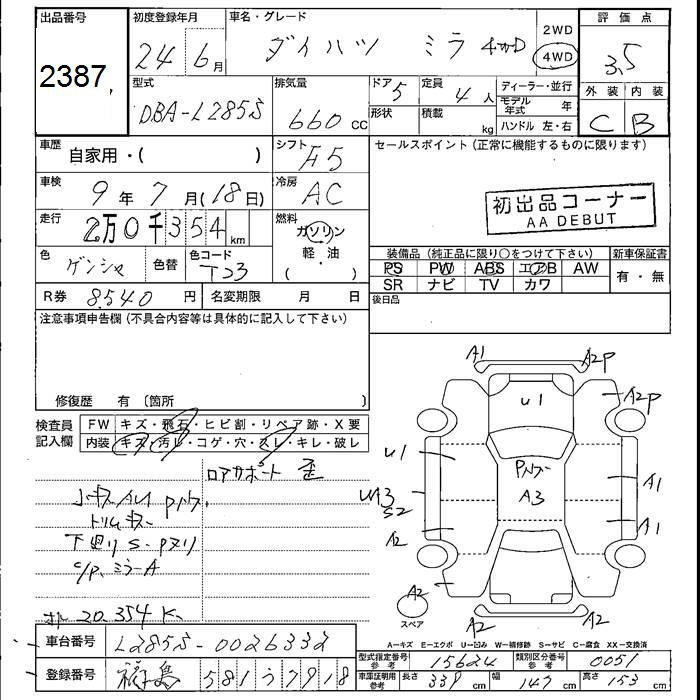 出品番号
2387
初度登録年月
24 6月
車名・グレード
ダイハツ ミラ 4WD
2WD
4WD
評価点
3.5
外装 内装
C B
型式
DBA-L285S
排気量
660 cc
ドア 5
形状
定員 4人
積載 kg
ディーラー・並行
モデル年式 年
ハンドル 左・右
車歴
自家用・( )
シフト
F5
セールスポイント(正常に機能するものに限ります)
車検
9年 7月(18日)
冷房
AC
初出品コーナー
AA DEBUT
走行
2万0千354 km
燃料
ガソリン
軽・油
( )
色
色替
色コード
T23
装備品(純正品に限り○をつけて下さい)
新車保証書
PS PW ABS エアB AW
SR ナビ TV カワ
有・無
R券 8540 円
名変期限 月 日
後日品
注意事項申告欄(不具合内容等は具体的に記入して下さい)
修復歴 有〔箇所 〕
検査員
記入欄
FW キズ・飛石・ヒビ割・リペア跡・X要
内装 キズ・汚レ・コゲ・穴・スレ・キレ・破レ
ロアサポート 歪
トリムキズ
下廻りS-Pヌリ
ミラーA
20.354 K
A1
A2P
U1
A2P
U1
A3
A1
S2
A1
A2
A2
A2
A2
スペア
A=キズ E=エクボ U=凹み W=補修跡 S=サビ C=腐食 XX=交換済
車台番号
L285S-0026332
登録番号
福島 581 う 7918
型式指定番号
参考
15624
類別区分番号
参考
0051
車庫証明用
参考
長さ 339 cm
幅 147 cm
高さ 153 cm